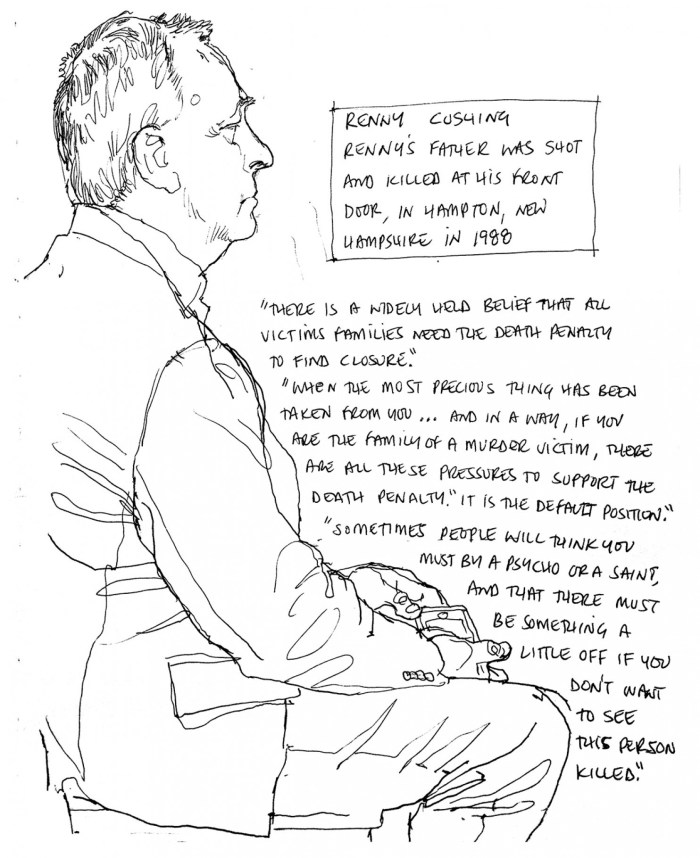 RENNY CUSHING
RENNY'S FATHER WAS SHOT
AND KILLED AT HIS FRONT
DOOR, IN HAMPTON, NEW
HAMPSHIRE IN 1988
"THERE IS A WIDELY HELD BELIEF THAT ALL
VICTIMS FAMILIES NEED THE DEATH PENALTY
TO FIND CLOSURE."
"WHEN THE MOST PRECIOUS THING HAS BEEN
TAKEN FROM YOU ... AND IN A WAY, IF YOU
ARE THE FAMILY OF A MURDER VICTIM, THERE
ARE ALL THESE PRESSURES TO SUPPORT THE
DEATH PENALTY." IT IS THE DEFAULT POSITION."
"SOMETIMES PEOPLE WILL THINK YOU
MUST BY A PSYCHO OR A SAINT,
AND THAT THERE MUST
BE SOMETHING A
LITTLE OFF IF YOU
DON'T WANT
TO SEE
THIS PERSON
KILLED."